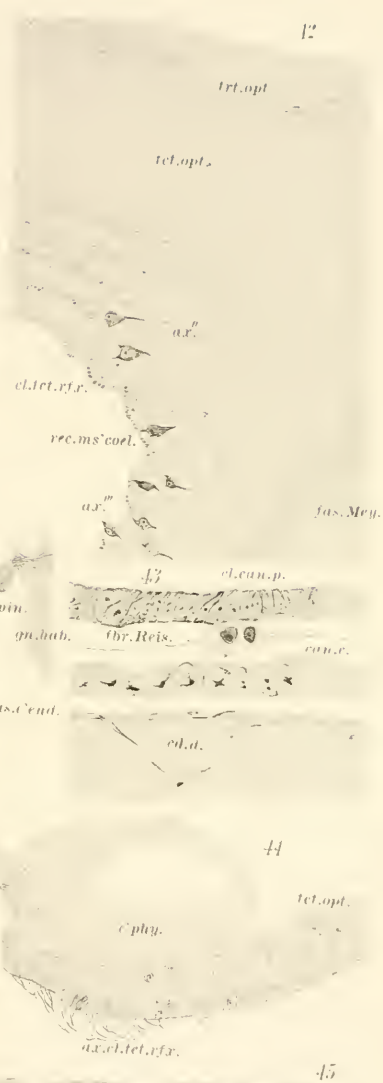 42
trt.opt
tct.opt.
ax."
cl.tct.rfx.
rec.ms'coel.
ax.'''
fas.Mey.
43
cl.can.p.
pin.
gn.hab.
fbr.Reis.
can.c.
as.c'end.
cd.d.
44
tct.opt.
e'phy.
ax.cl.tct.rfx.
45